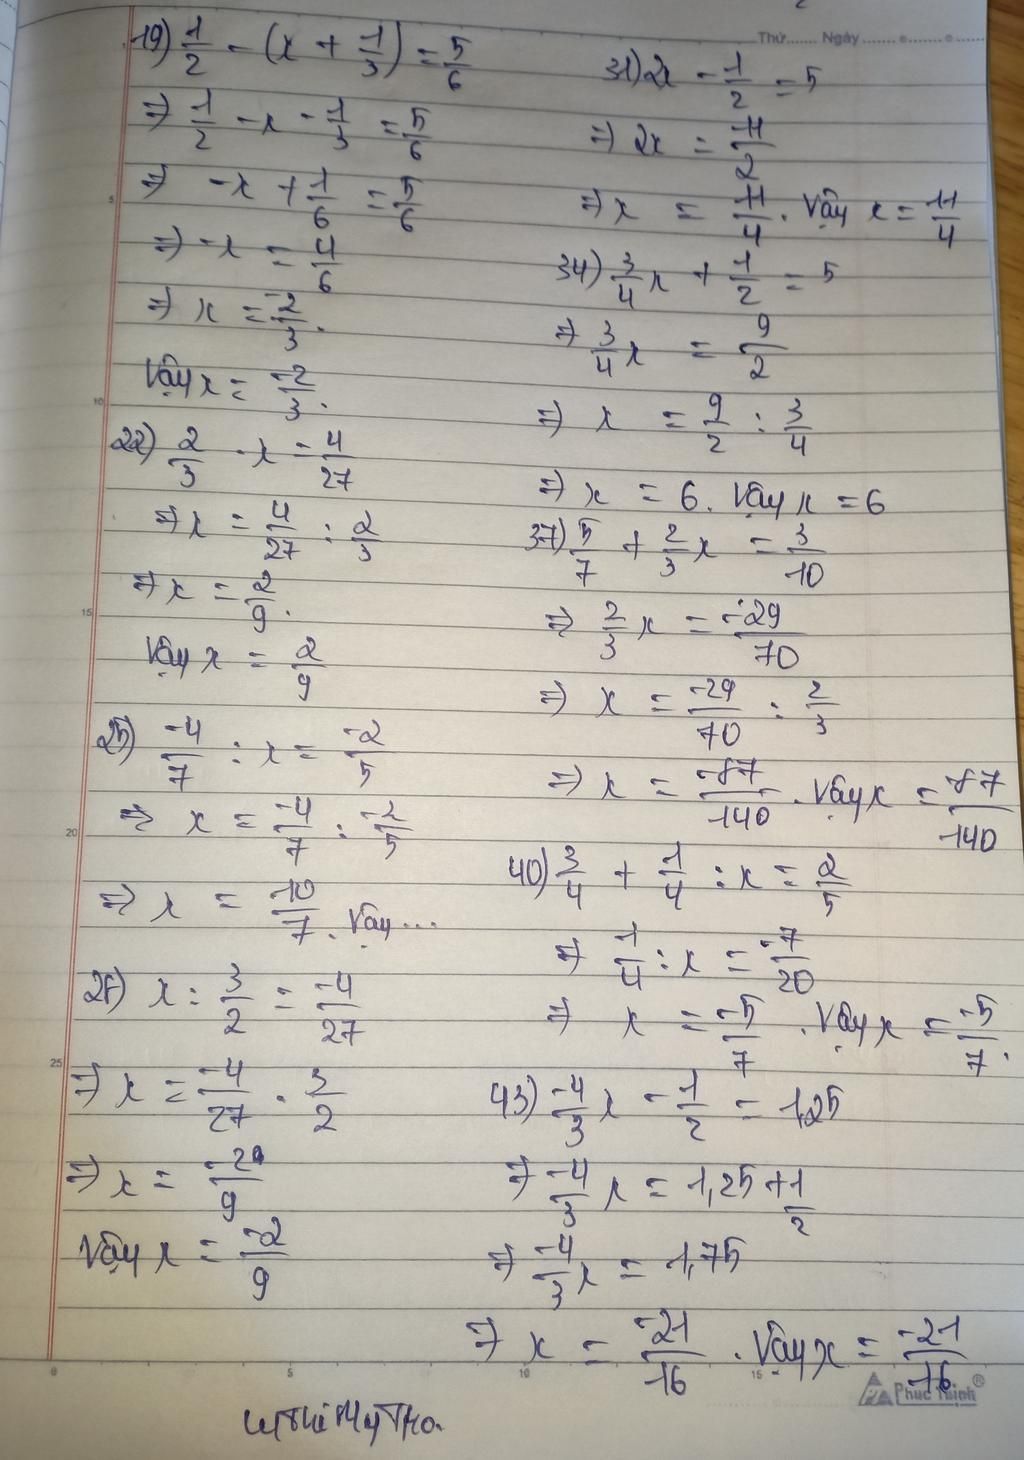 Thứ....... Ngày ....... ..... .....
19) 1/2 - (x + 1/3) = 5/6
=> 1/2 - x - 1/3 = 5/6
=> -x + 1/6 = 5/6
=> -x = 4/6
=> x = -2/3.
Vậy x = -2/3.
22) 2/3 . x = 4/27
=> x = 4/27 : 2/3
=> x = 2/9.
Vậy x = 2/9
25) -4/7 : x = -2/5
=> x = -4/7 : -2/5
=> x = 10/7. Vậy ...
28) x : 3/2 = -4/27
=> x = -4/27 . 3/2
=> x = -2/9
Vậy x = -2/9
31) 2x - 1/2 = 5
=> 2x = 11/2
=> x = 11/4. Vậy x = 11/4
34) 3/4 x + 1/2 = 5
=> 3/4 x = 9/2
=> x = 9/2 : 3/4
=> x = 6. Vậy x = 6
37) 5/7 + 2/3 x = 3/10
=> 2/3 x = -29/70
=> x = -29/70 : 2/3
=> x = -87/140. Vậy x = -87/140
40) 3/4 + 1/4 : x = 2/5
=> 1/4 : x = -7/20
=> x = -5/7. Vậy x = -5/7.
43) -4/3 x - 1/2 = 1,25
=> -4/3 x = 1,25 + 1/2
=> -4/3 x = 1,75
=> x = -21/16. Vậy x = -21/16
Phúc Thịnh®
5
10
15
20
25
0
5
10
15